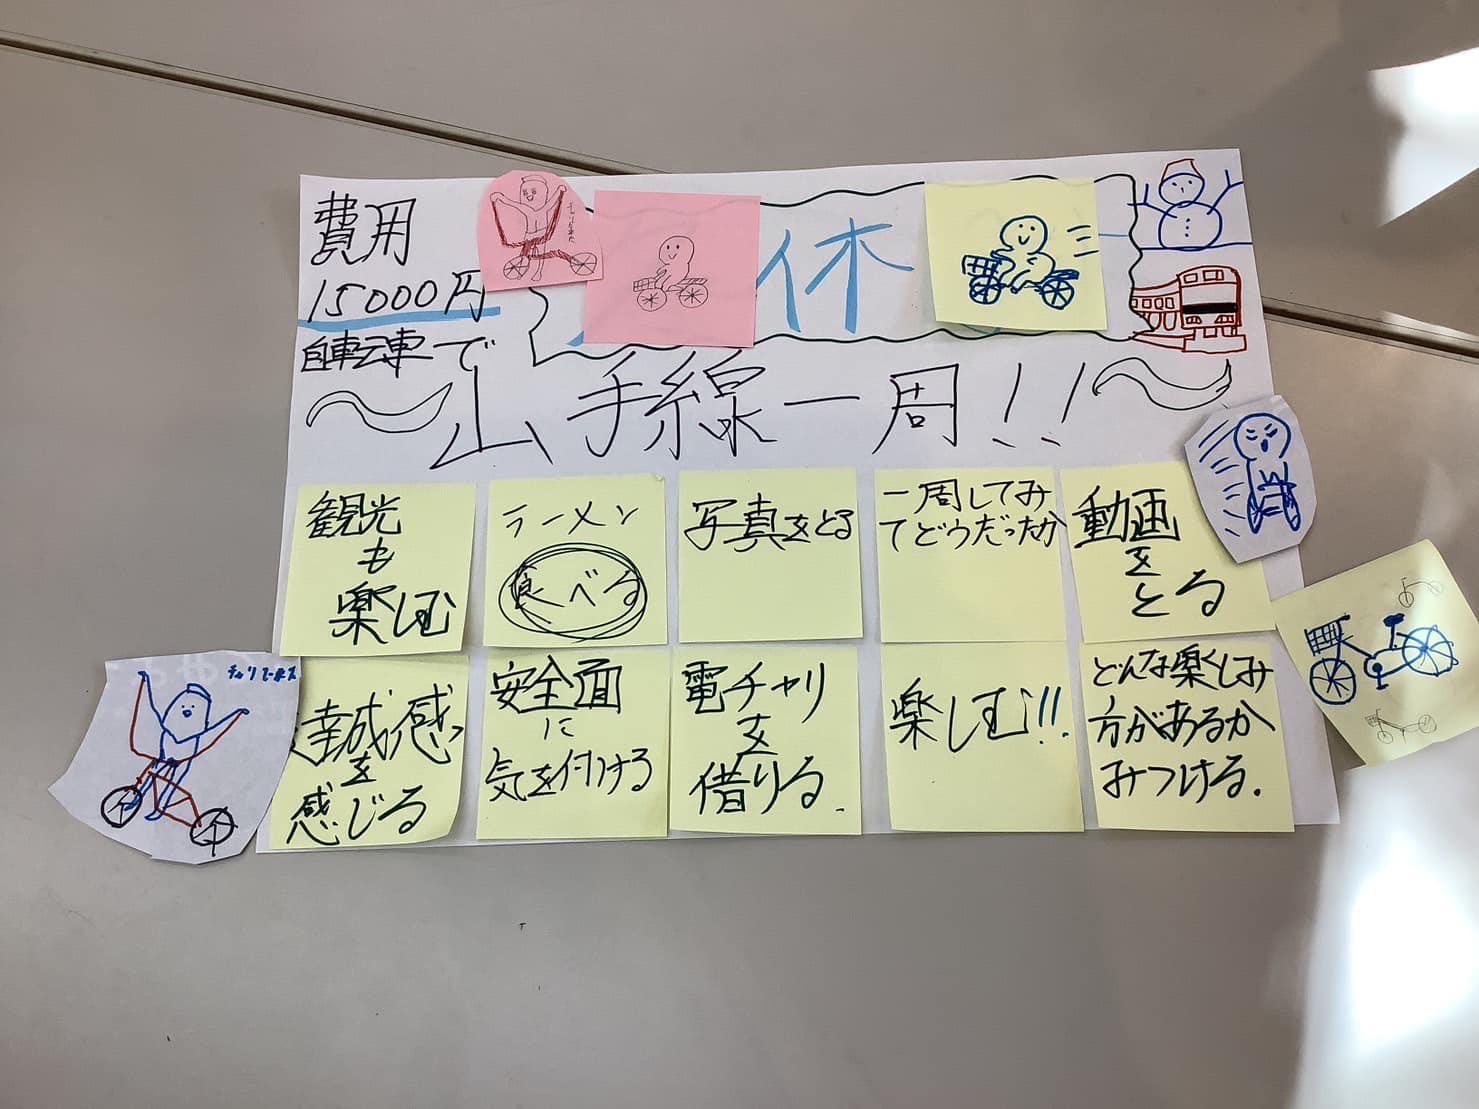 費用
15000円
自転車で
休
山手線一周!!
観光
も
楽しむ
ラーメン
食べる
写真をとる
一周してみ
てどうだったか
動画
を
とる
達成感
を
感じる
安全面
に
気を付ける
電チャリ
を
借りる.
楽しむ!!
どんな楽しみ
方があるか
みつける.